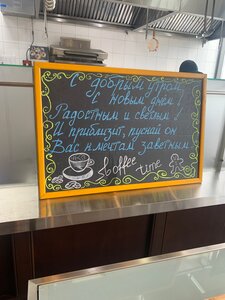 С добрым утром,
С новым днём!
Радостным и светлым!
И приблизит, пускай он
Вас к мечтам заветным
Coffee
time